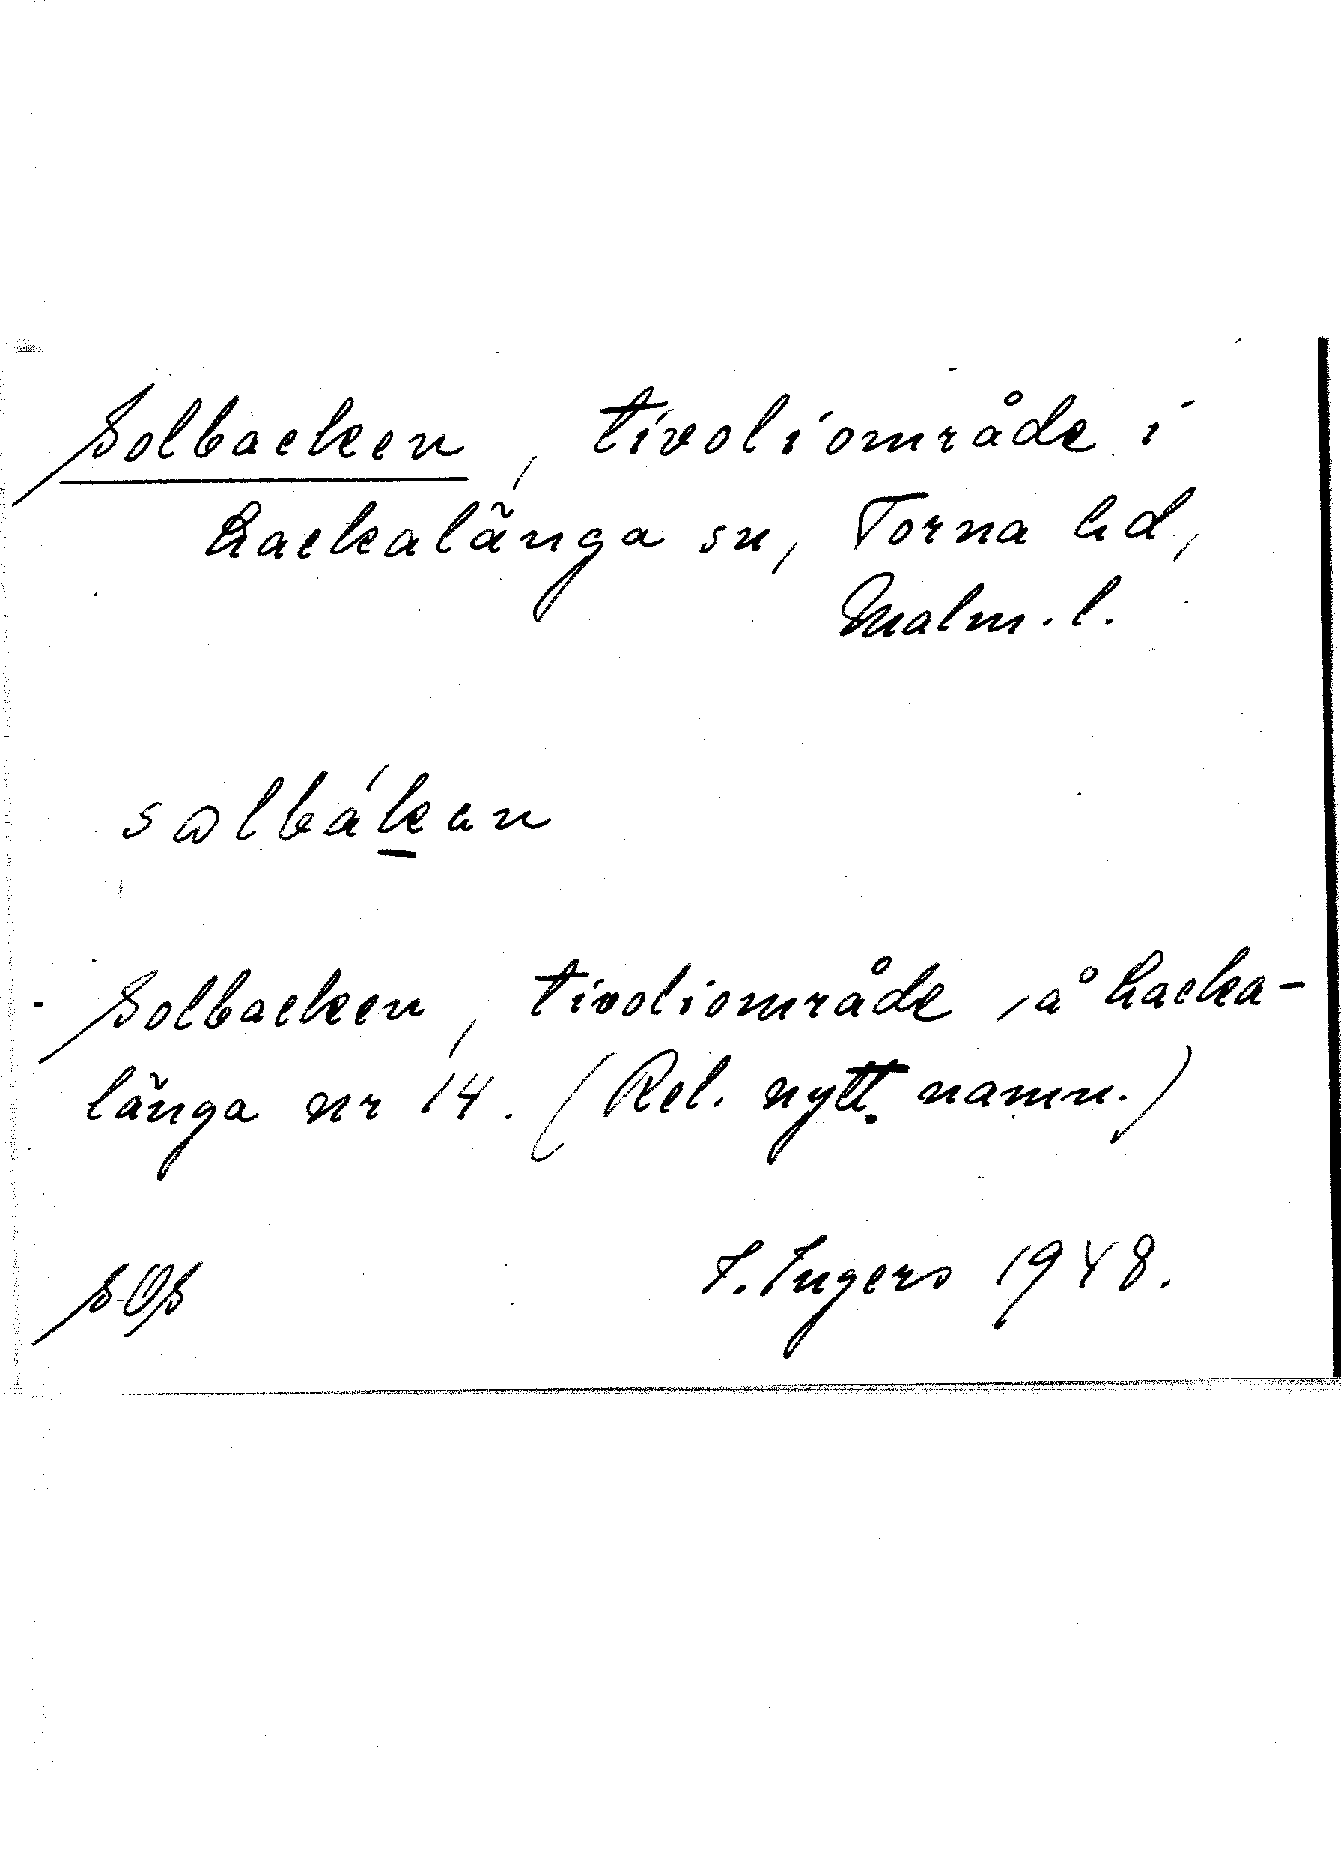 Solbacken, tivoliområde i
Hackalänga sn, Torna hd,
Malm. l.
sωlbákan
Solbacken, tivoliområde å Hacka-
länga nr 14. (Rel. nytt namn.)
SOS
I. Ingers 1948.